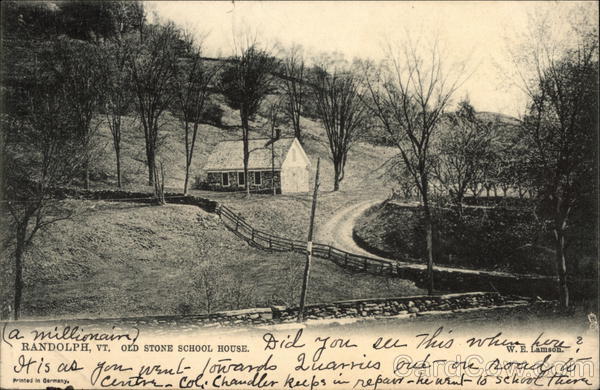 (a millionaire)
RANDOLPH, VT. OLD STONE SCHOOL HOUSE.
W. E. Lamson.
Printed in Germany
Did you see this when here?
It is as you went towards Quarries out on road to
Centre - Col. Chandler keeps in repair - He went to school there
CardCow.com